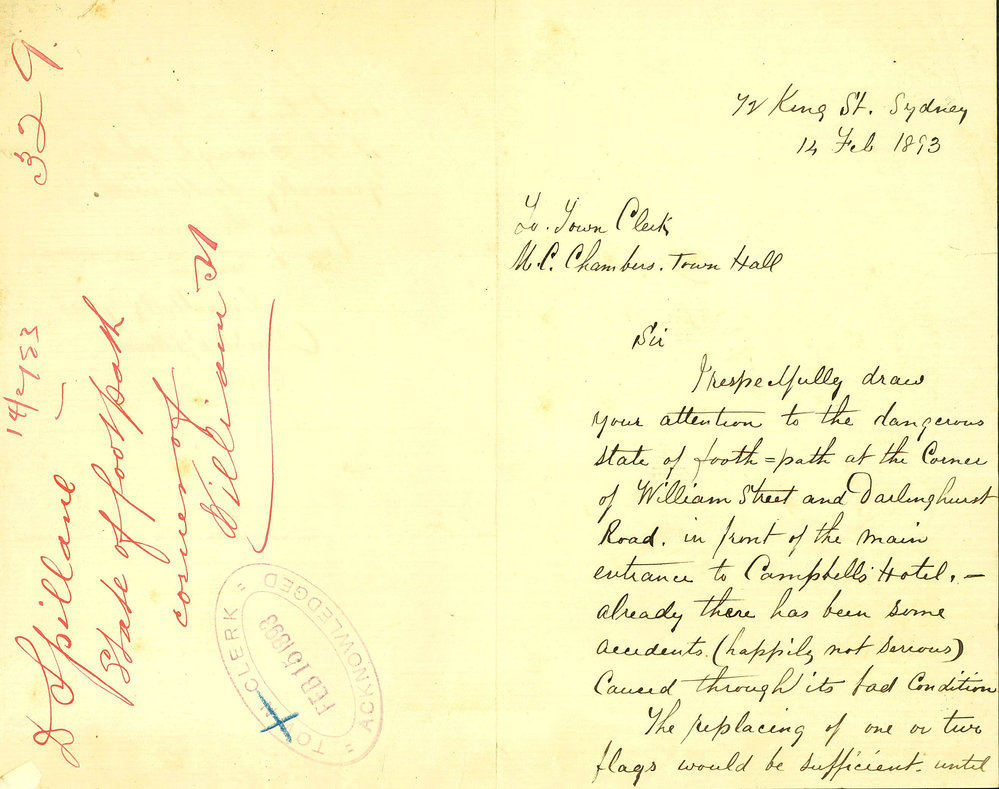 329.
14/2/93
D Spillane
State of footpath
corner of
William St
TOWN CLERK
FEB 15 1893
ACKNOWLEDGED
72 King St. Sydney
14 Feb 1893
To. Town Clerk
M.C. Chambers. Town Hall
Sir
I respectfully draw
your attention to the dangerous
state of footh=path at the Corner
of William Street and Darlinghurst
Road. in front of the main
entrance to Campbells Hotel. –
already there has been some
accidents (happily not serious)
Caused through its bad Condition
The replacing of one or two
flags would be sufficient. until